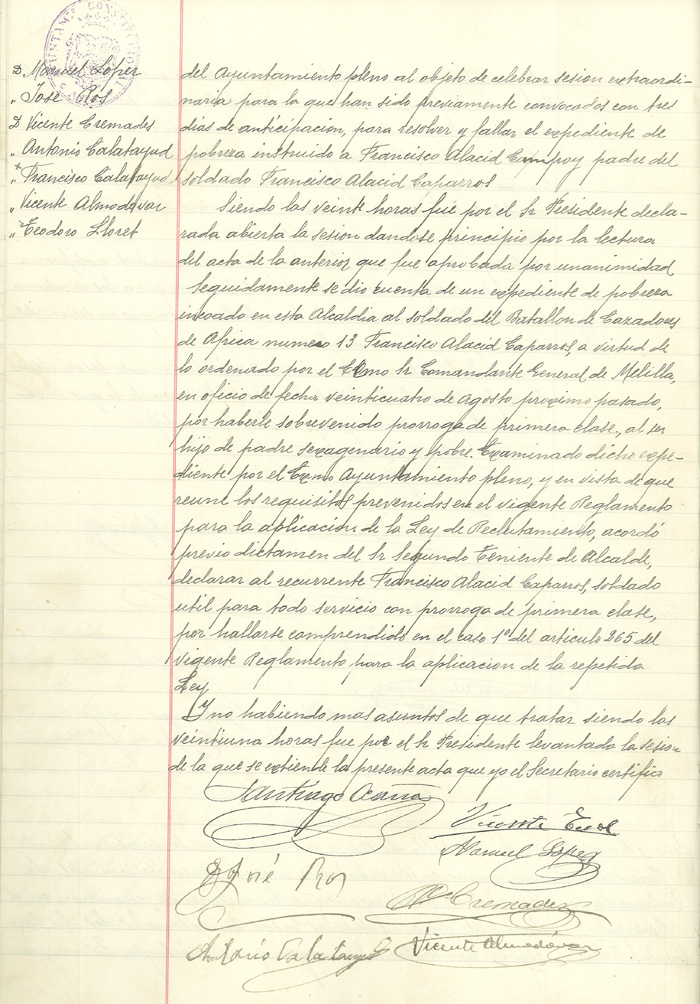 AYUNTAM CONSTITUCIONAL
D Manuel López
" José Ros
D Vicente Cremades
" Antonio Calatayud
" Francisco Calatayud
" Vicente Almodovar
" Teodoro Lloret
del Ayuntamiento pleno al objeto de celebrar sesion extraordi-
naria para lo que han sido previamente convocados con tres
dias de anticipacion, para resolver y fallar el expediente de
pobreza instruido a Francisco Alacid Campoy padre del
soldado Francisco Alacid Caparros
Siendo las veinte horas fue por el Sr Presidente decla-
rada abierta la sesion dandose principio por la lectura
del acta de la anterior que fue aprobada por unanimidad
Seguidamente se dio cuenta de un expediente de pobreza
incoado en esta Alcaldia al soldado del Batallon de Cazadores
de Africa numero 13 Francisco Alacid Caparros, a virtud de
lo ordenado por el Exmo Sr Comandante General de Melilla,
en oficio de fecha veinticuatro de Agosto proximo pasado,
por haberle sobrevenido prorroga de primera clase, al ser
hijo de padre sexagenario y pobre. Examinado dicho expe-
diente por el Exmo Ayuntamiento pleno, y en vista de que
reune los requisitos prevenidos en el vigente Reglamento
para la aplicacion de la Ley de Reclutamiento, acordó
previo dictamen del Sr Segundo Teniente de Alcalde,
declarar al recurrente Francisco Alacid Caparros, soldado
util para todo servicio con prorroga de primera clase,
por hallarse comprendido en el caso 1º del articulo 265 del
vigente Reglamento para la aplicacion de la repetida
Ley
Y no habiendo mas asuntos de que tratar siendo las
veintiuna horas fue por el Sr Presidente levantada la sesion
de la que se extiende la presente acta que yo el Secretario certifico
Santiago
Vicente
Manuel López
José Ros
Cremades
Antonio Calatayud
Vicente Almodóvar